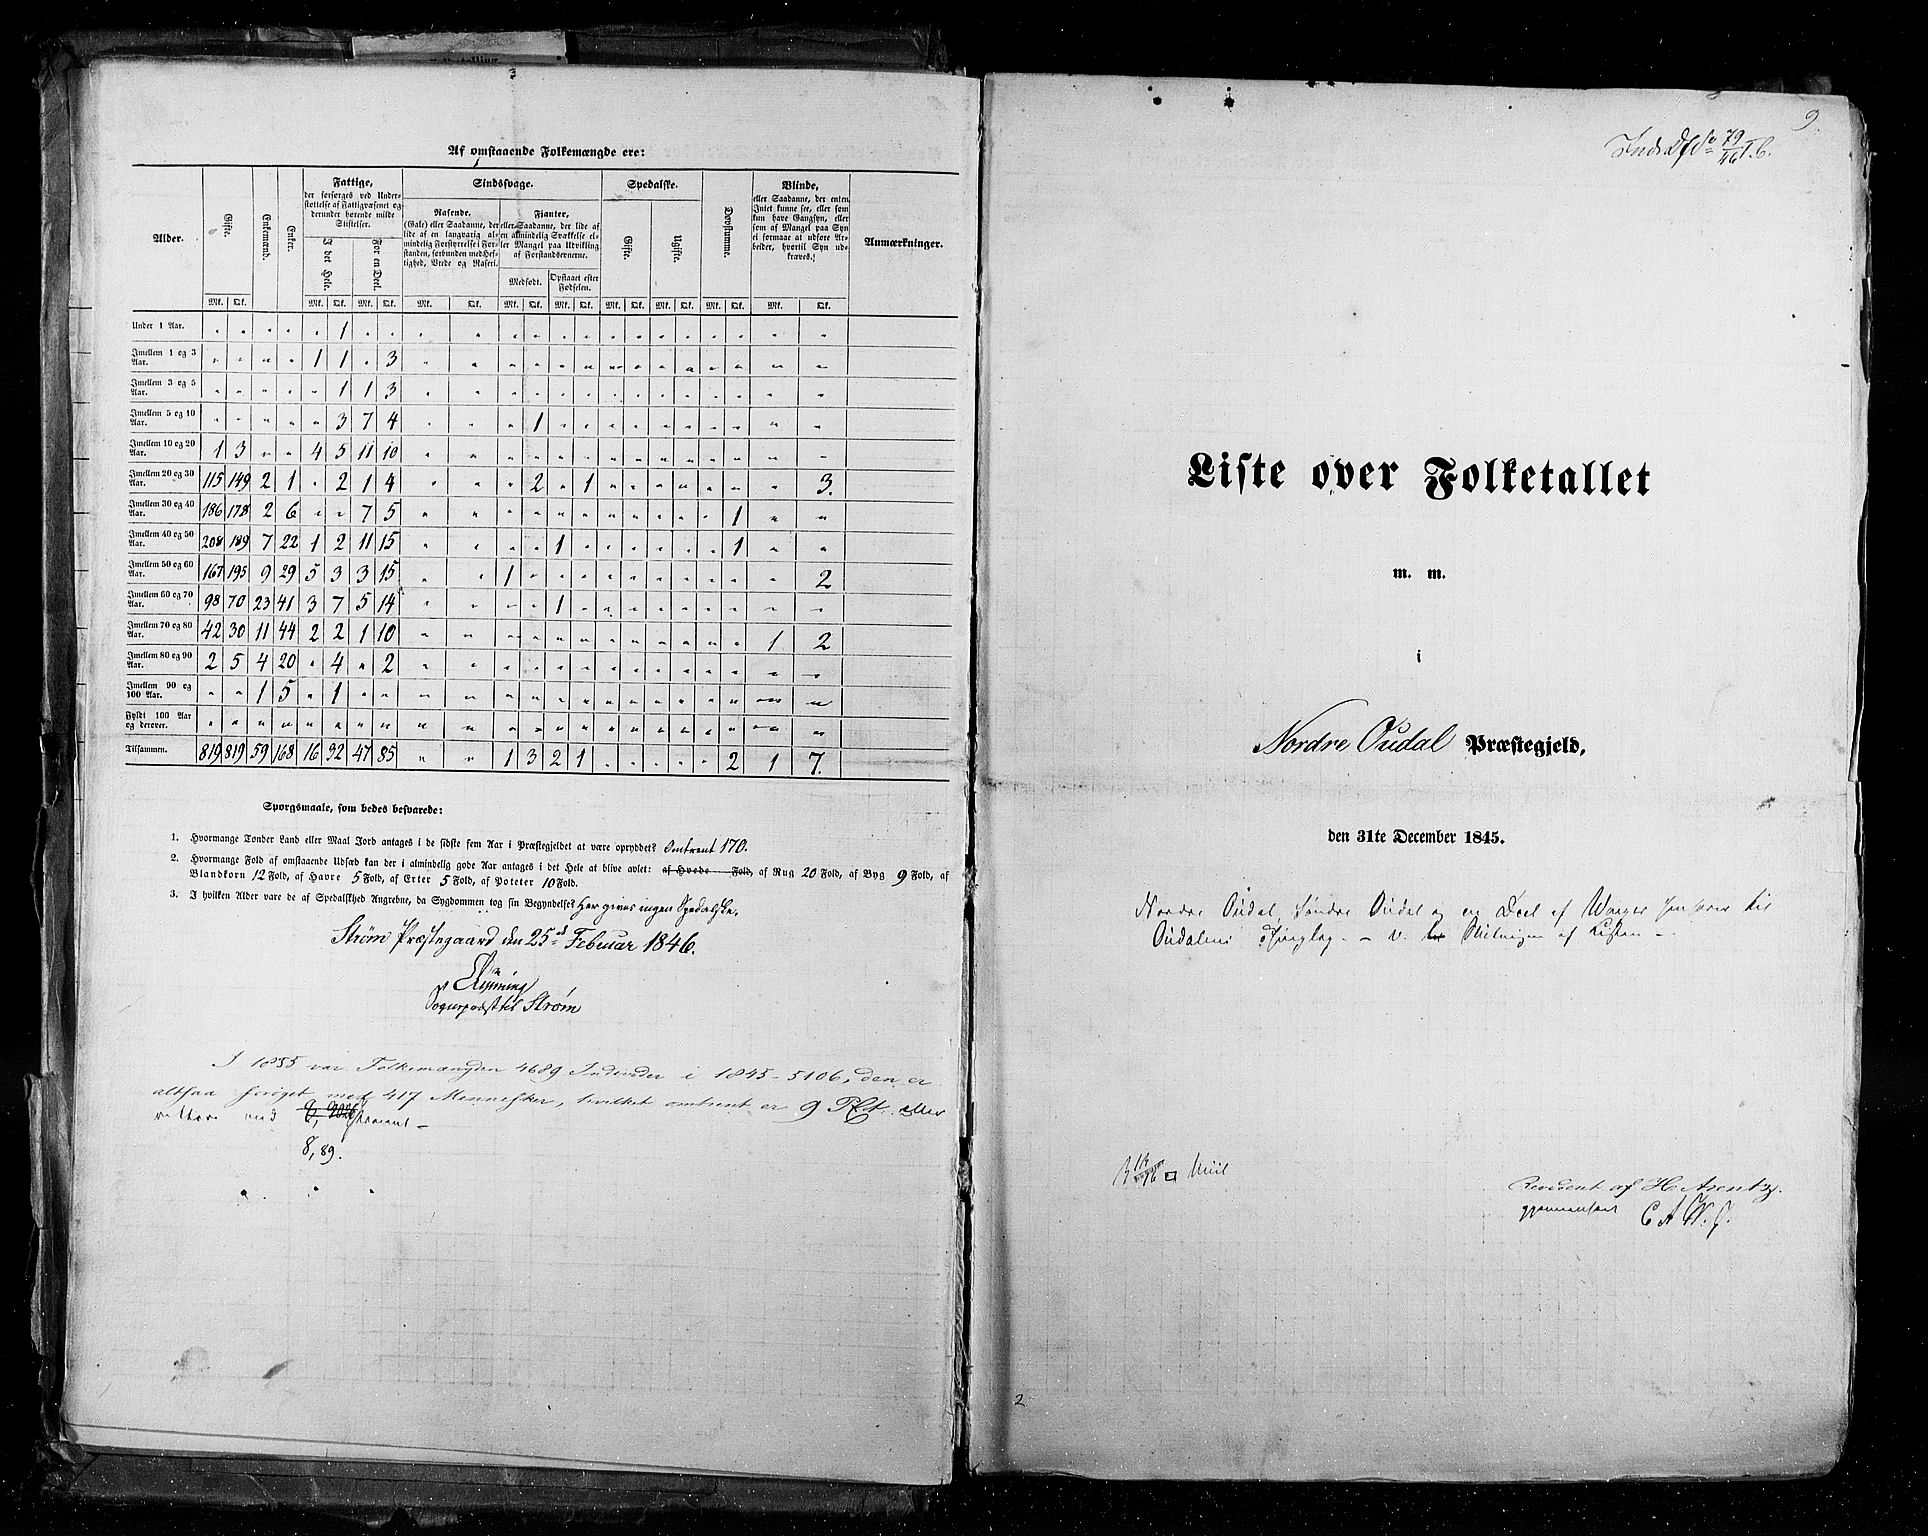 Af omstaaende Folkemængde ere:
Alder. Gifte. Enkemænd. Enker. Fattige, der forsørges ved Understøttelse af Fattigvæsenet og derunder hørende milde Stiftelser. Sindssvage. Spedalske. Døvstumme. Blinde, eller Saadanne, der enten Intet kunne see, eller som kun have Gangsyn, eller som af Mangel paa Syn ei formaae at udføre Arbeider, hvortil Syn udkræves.) Anmærkninger.
I det Hele. For en Deel. Rasende. (Gale) eller Saadanne, der lide af en langvarig almindelig Forstyrrelse i Forstanden, forbunden med Heftighed, Vrede og Raseri. Fjanter, eller Saadanne, der lide af en almindelig Svækkelse eller Mangel paa Udvikling af Forstandsevnerne. Gifte. Ugifte.
Medfødt. Opstaaet efter Fødselen.
Mk. Qk. Mk. Qk. Mk. Qk. Mk. Qk. Mk. Qk. Mk. Qk. Mk. Qk. Mk. Qk. Mk. Qk. Mk. Qk.
Under 1 Aar. " " " " " 1 " " " " " " " " " " " " " " " "
Imellem 1 og 3 Aar. " " " " 1 1 " 3 " " " " " " " " " " " " " "
Imellem 3 og 5 Aar. " " " " " 1 1 3 " " " " " " " " " " " " " "
Imellem 5 og 10 Aar. " " " " " 3 7 4 " " " 1 " " " " " " " " " "
Imellem 10 og 20 Aar. 1 3 " " 4 5 11 10 " " " " " " " " " " " " " "
Imellem 20 og 30 Aar. 115 149 2 1 " 2 1 4 " " " 2 " 1 " " " " " " " 3.
Imellem 30 og 40 Aar. 186 178 2 6 " " 7 5 " " " " " " " " " " " 1 " "
Imellem 40 og 50 Aar. 208 189 7 22 1 2 11 15 " " " " 1 " " " " " " 1 " "
Imellem 50 og 60 Aar. 167 195 9 29 5 3 3 15 " " 1 " " " " " " " " " " 2
Imellem 60 og 70 Aar. 98 70 23 41 3 7 5 14 " " " " 1 " " " " " " " " "
Imellem 70 og 80 Aar. 42 30 11 44 2 2 1 10 " " " " " " " " " " " " 1 2
Imellem 80 og 90 Aar. 2 5 4 20 " 4 " 2 " " " " " " " " " " " " " "
Imellem 90 og 100 Aar. " " 1 5 " 1 " " " " " " " " " " " " " " " "
Fyldt 100 Aar og derover. " " " " " " " " " " " " " " " " " " " " " "
Tilsammen. 819 819 59 168 16 32 47 85 " " 1 3 2 1 " " " " " 2 1 7.
Spørgsmaale, som bedes besvarede:
1. Hvormange Tønder Land eller Maal Jord antages i de sidste fem Aar i Præstegjeldet at være opryddet? Omtrent 170.
2. Hvormange Fold af omstaaende Udsæd kan der i almindelig gode Aar antages i det Hele at blive avlet: af Hvede Fold, af Rug 20 Fold, af Byg 9 Fold, af
Blandkorn 12 Fold, af Havre 5 Fold, af Erter 5 Fold, af Poteter 10 Fold.
3. I hvilken Alder vare de af Spedalskhed Angrebne, da Sygdommen tog sin Begyndelse? Her gives ingen Spedalske.
Strøm Præstegaard den 25d Februar 1846.
Sognepræst til Strøm
I 1835 var Folkemængden 4689 Individer i 1845 - 5106, den er
altsaa forøget med 417 Mennesker, hvilket omtrent er 9 PCt. eller
rettere med
8,89.
9
79/46
Liste over Folketallet
m. m.
i
Nordre Oudal Præstegjeld,
den 31te December 1845.
Nordre Oudal, Søndre Oudal og en Deel af til
Oudalens Thinglag. - v.
Revideret af H. Arentz.
gjennemseet C A W.
2